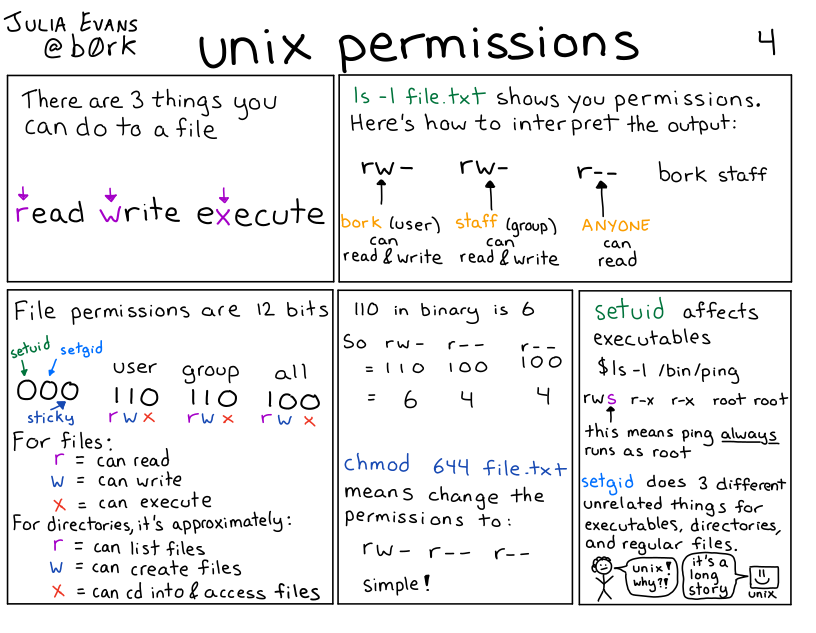 JULIA EVANS
@b0rk
unix permissions
4
There are 3 things you
can do to a file
read write execute
ls -l file.txt shows you permissions.
Here's how to interpret the output:
rw- rw- r-- bork staff
bork (user)
can
read & write
staff (group)
can
read & write
ANYONE
can
read
File permissions are 12 bits
setuid setgid
user group all
000 110 110 100
sticky rwx rwx rwx
For files:
r = can read
w = can write
x = can execute
For directories, it's approximately:
r = can list files
w = can create files
x = can cd into & access files
110 in binary is 6
So rw- r-- r--
= 110 100 100
= 6 4 4
chmod 644 file.txt
means change the
permissions to:
rw- r-- r--
simple!
setuid affects
executables
$ls -l /bin/ping
rws r-x r-x root root
this means ping always
runs as root
setgid does 3 different
unrelated things for
executables, directories,
and regular files.
unix!
why?!
it's a
long
story
unix